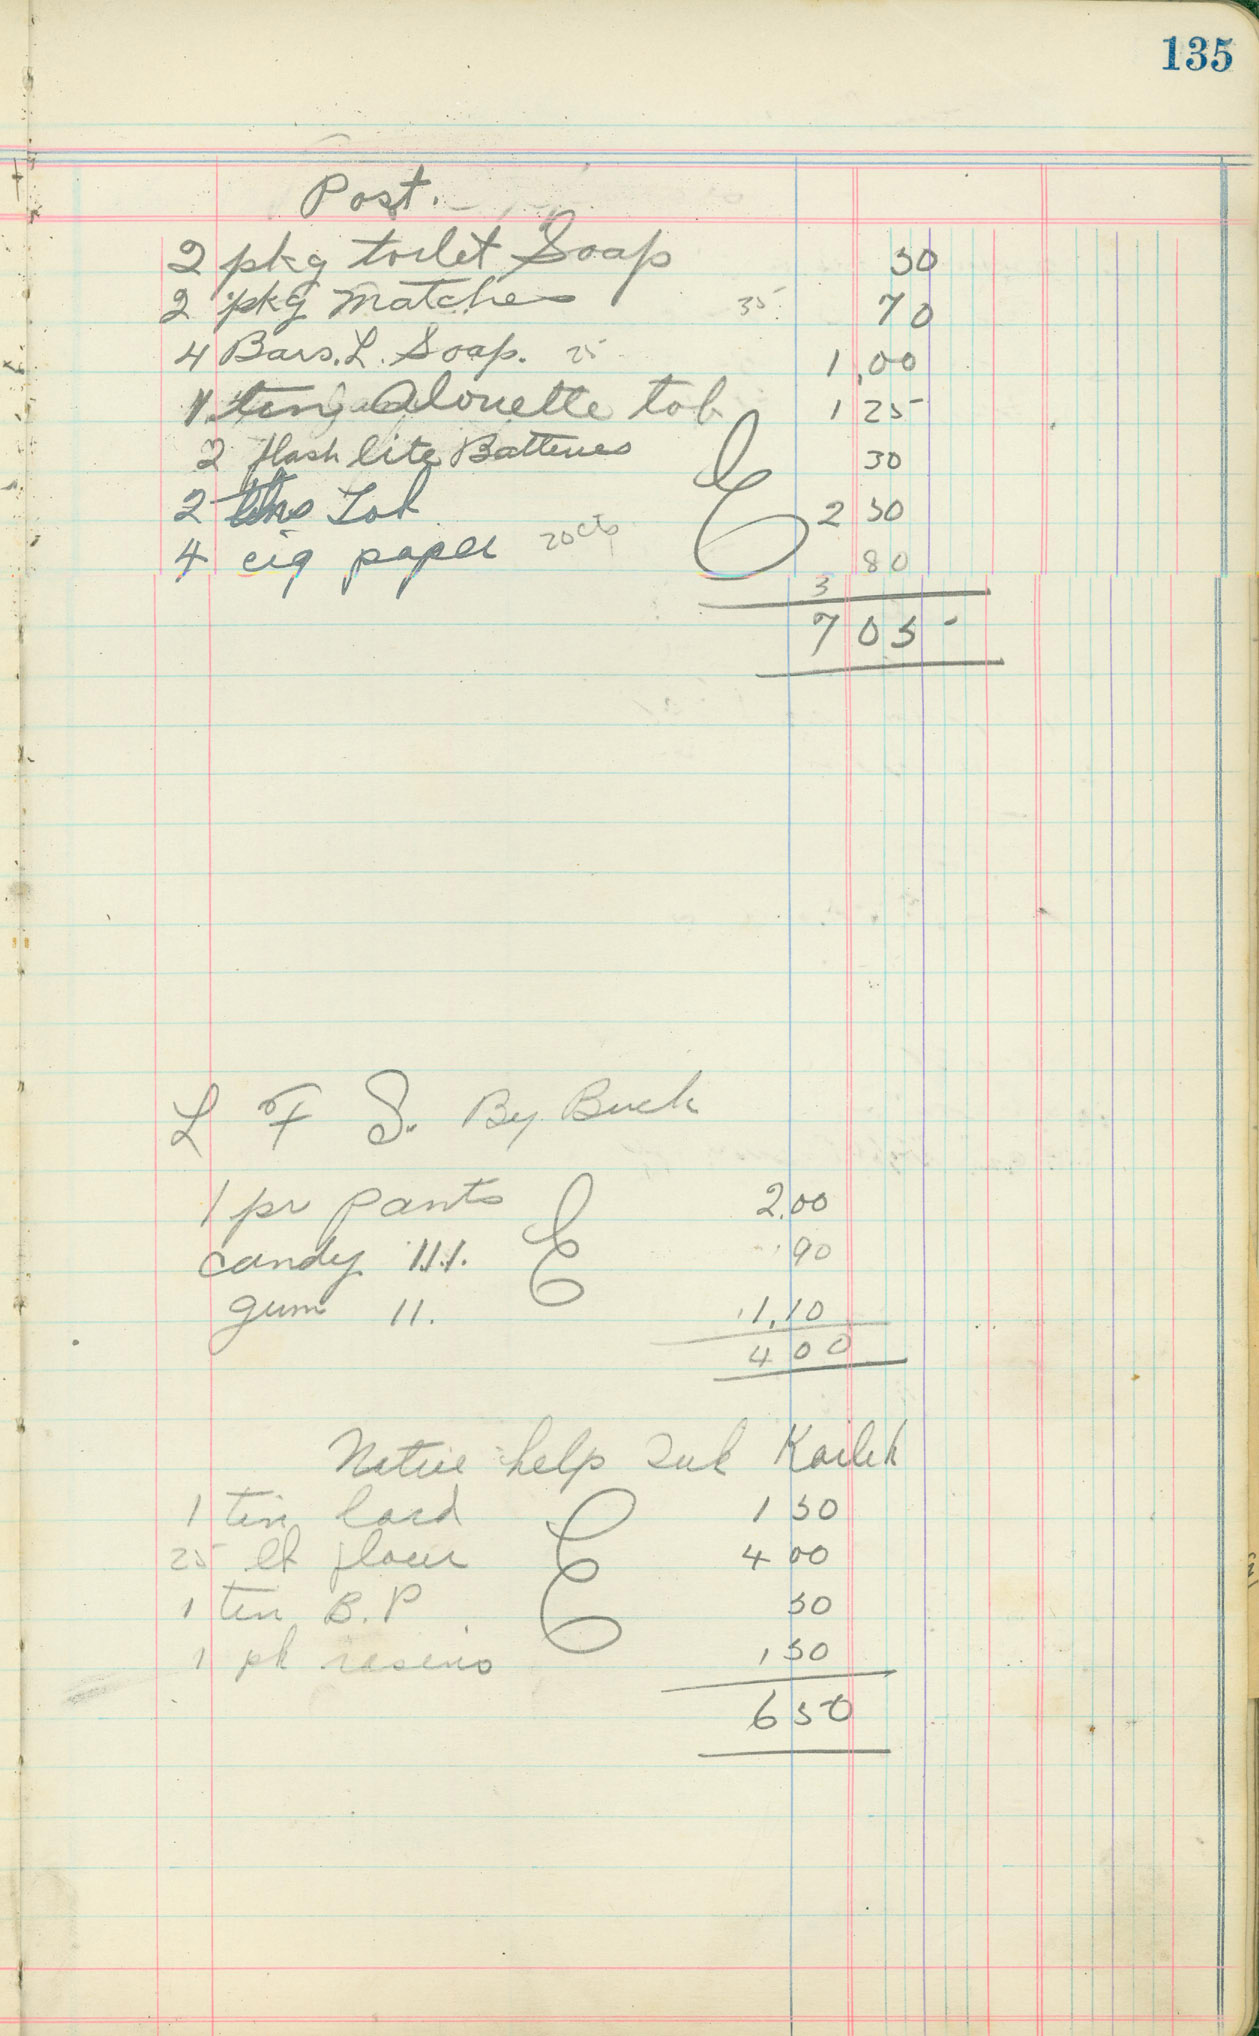 135
Post.
2 pkg toilet Soap 50
2 pkg Matches 35 70
4 Bars. L. Soap. 25 1,00
1 tin Alouette tob 1 25
2 flash lite Batteries 30
2 tins Tob 2 50
4 cig paper 20cts 80
3
7 05-
L F S. By Buck
1 pr pants 2.00
candy 111. 90
gum 11. 1,10
4 00
Native help
1 tin lard 1 50
25 lb flour 4 00
1 tin B.P 50
1 pk rasins , 50
6 50